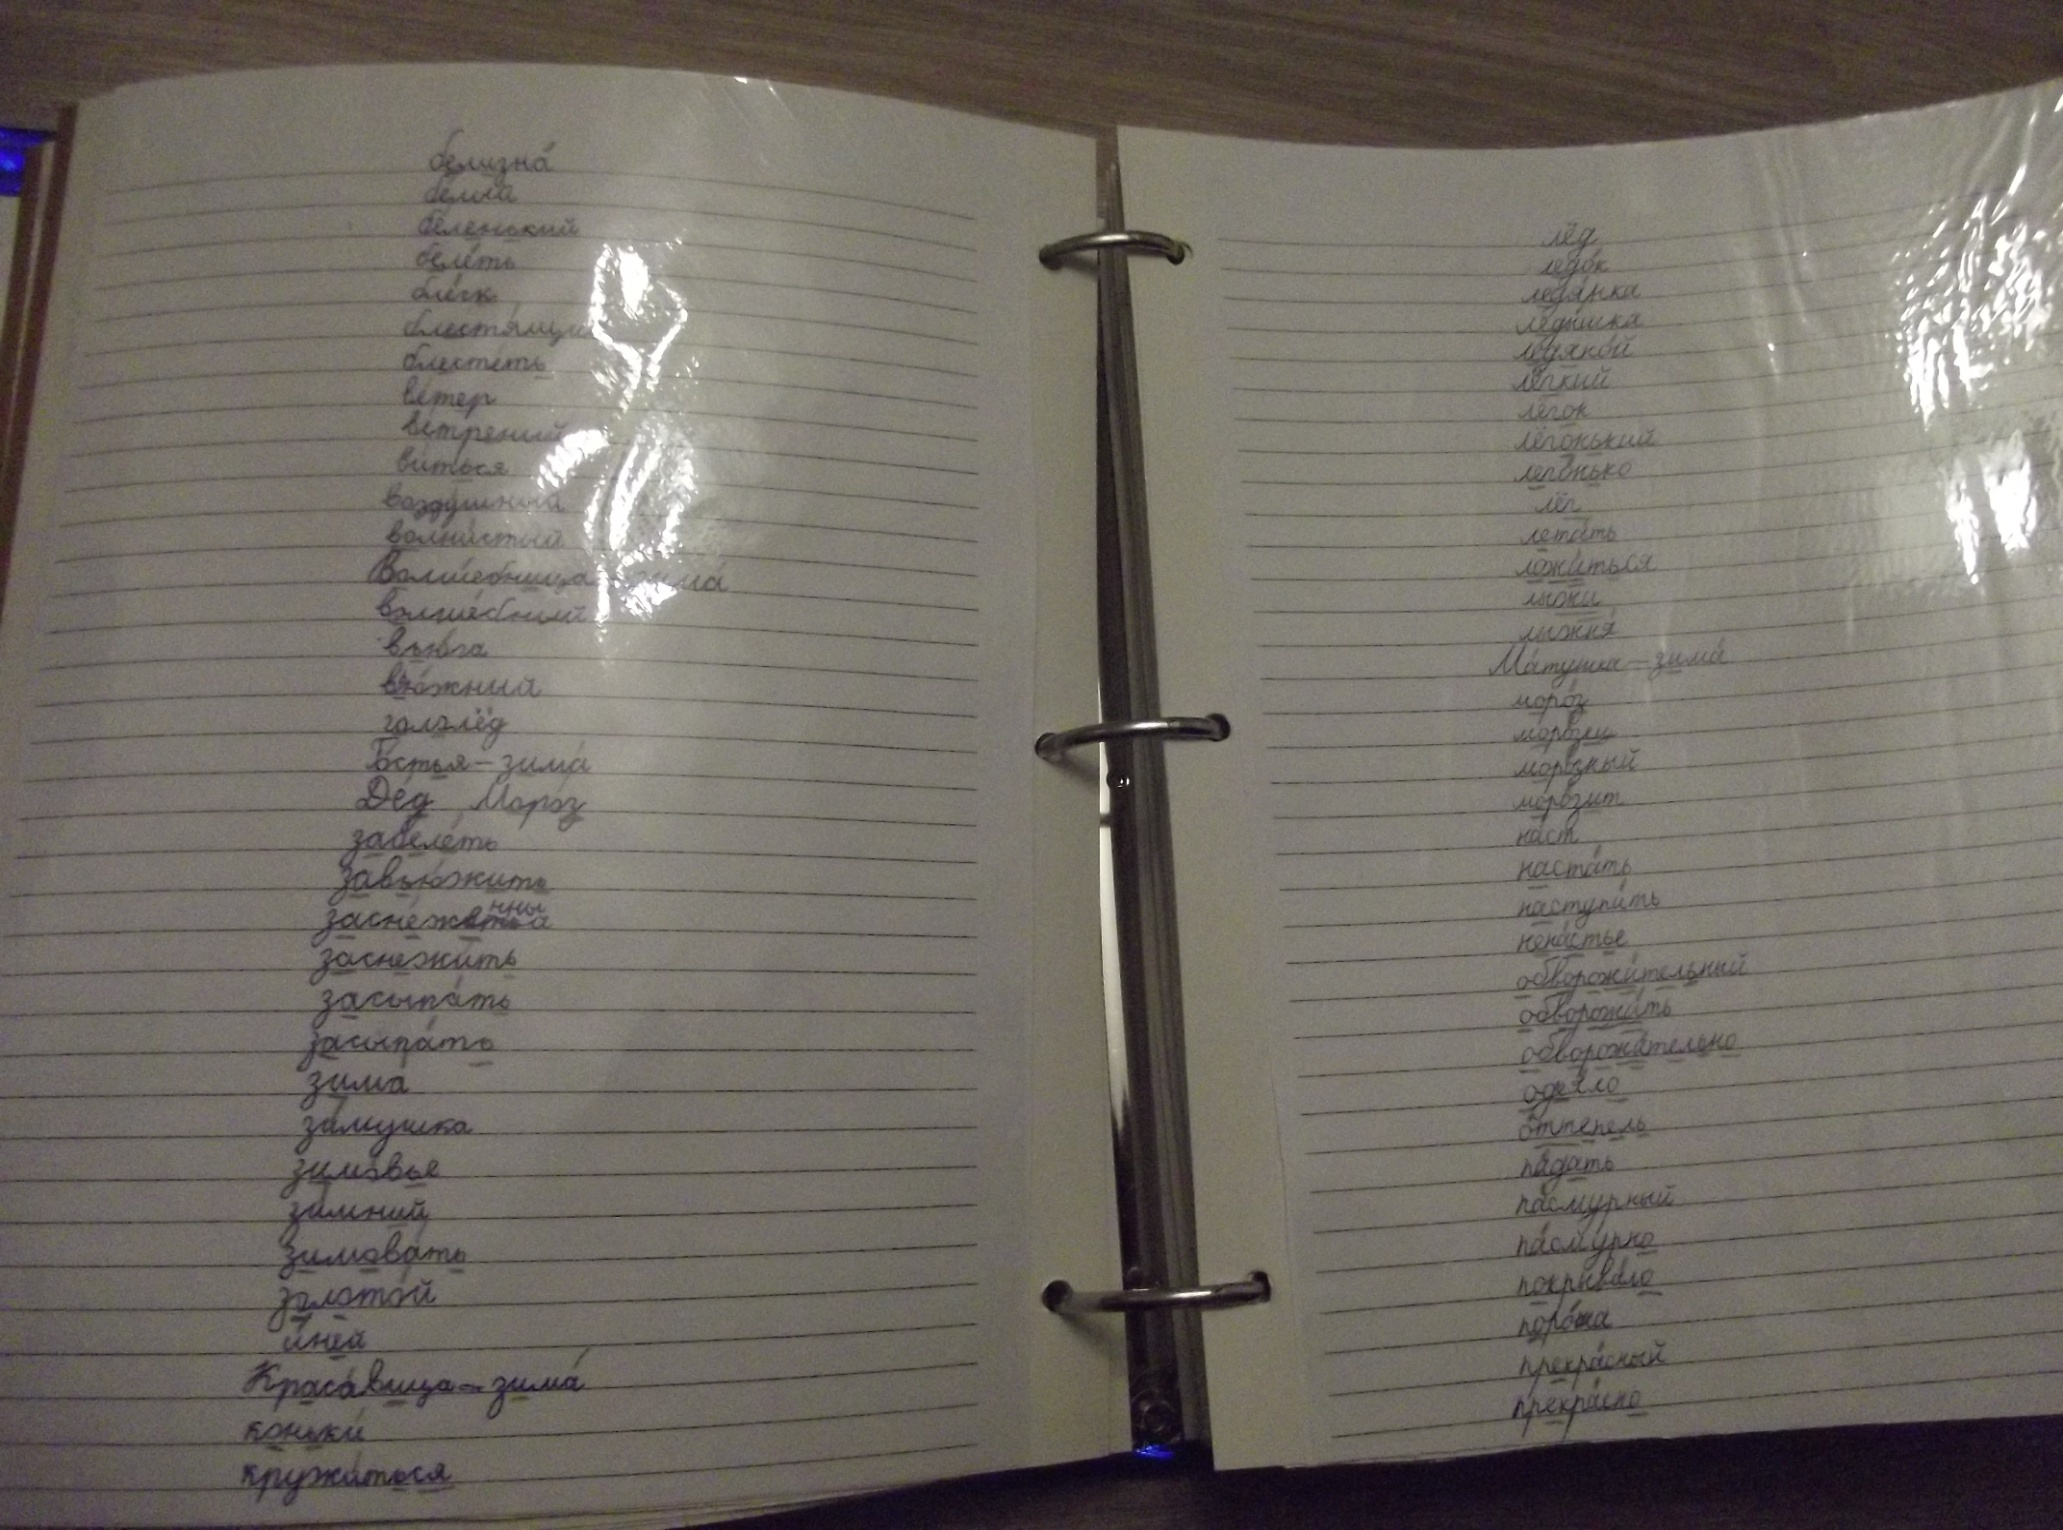 белизна́
бе́лка
бе́ленький
беле́ть
блеск
блестя́щи
блесте́ть
ве́тер
ве́треный
ви́ться
возду́шный
волни́стый
Волше́бница зима́
волше́бный
вью́га
вью́жний
гололёд
Го́стья – зима́
Дед Моро́з
забеле́ть
завью́жить
засне́женный
заснежи́ть
засыпа́ть
засыпа́ть
зима
зи́мушка
зимо́вье
зи́мний
зимова́ть
золото́й
и́ней
Краса́вица – зима́
коньки́
кружи́ться
лёд
ледо́к
ледя́нка
леды́шка
ледяно́й
лёгкий
лёгок
лёгонький
лего́нько
лёг
лета́ть
ложи́ться
лыжи
лыжня́
Ма́тушка – зима́
моро́з
моро́зы
моро́зный
моро́зит
наст
наста́ть
наступи́ть
нена́стье
обворожи́тельный
обворожи́ть
обворожи́тельно
одея́ло
о́ттепель
па́дать
па́смурный
па́смурно
покрыва́ло
поро́ша
прекра́сный
прекра́сно